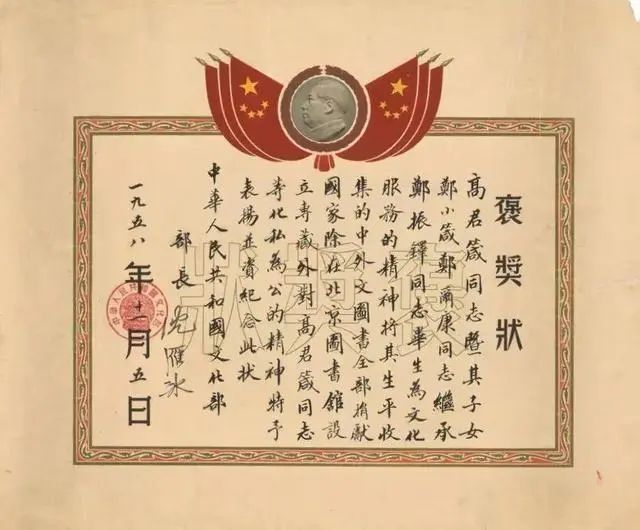 褒獎狀
高君箴同志暨其子女
鄭小箴鄭爾康同志繼承
鄭振鐸同志畢生為文化
服務的精神将其生平收
集的中外文圖書全部捐献
國家除在北京圖書館設
立專藏外對高君箴同志
等化私為公的精神特予
表揚並賫紀念此状
中華人民共和國文化部
部長 沈雁冰
一九五八年十一月五日
褒獎狀
中華人民共和國文化部